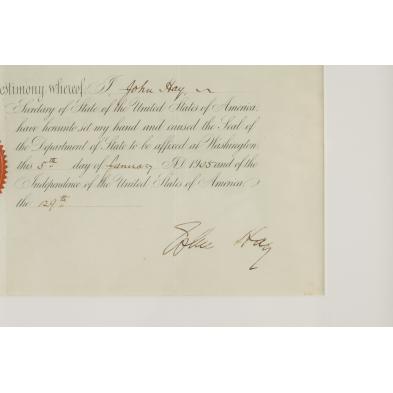 estimony whereof, I, John Hay,
Secretary of State of the United States of America,
have hereunto set my hand and caused the Seal of
the Department of State to be affixed at Washington
this 5th day of January A.D. 1905 and of the
Independence of the United States of America,
the 129th
John Hay